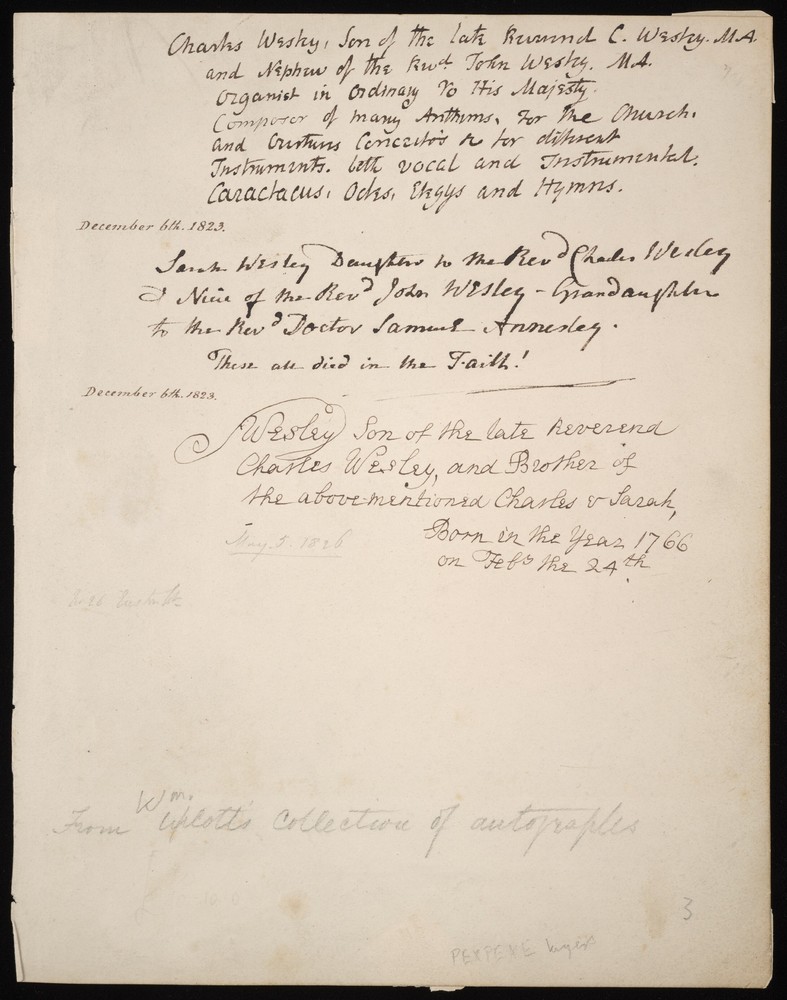 Charles Wesley, Son of the late Reverend C. Wesley. M.A.
and Nephew of the Revd John Wesley. M.A.
Organist in Ordinary to His Majesty.
Composer of many Anthems, for the Church,
and Concertos for different
Instruments. both vocal and Instrumental.
Caractacus, Odes, Elegys and Hymns.
December 6th. 1823.
Sarah Wesley Daughter to the Revd Charles Wesley
& Niece of the Revd John Wesley - Grandaughter
to the Revd Doctor Samuel Annesley.
These all died in the Faith!
December 6th. 1823.
SWesley Son of the late Reverend
Charles Wesley, and Brother of
the above-mentioned Charles & Sarah,
Born in the Year 1766
on Feby the 24th
May 5. 1826
Wm.
From Upcott's Collection of autographs
3